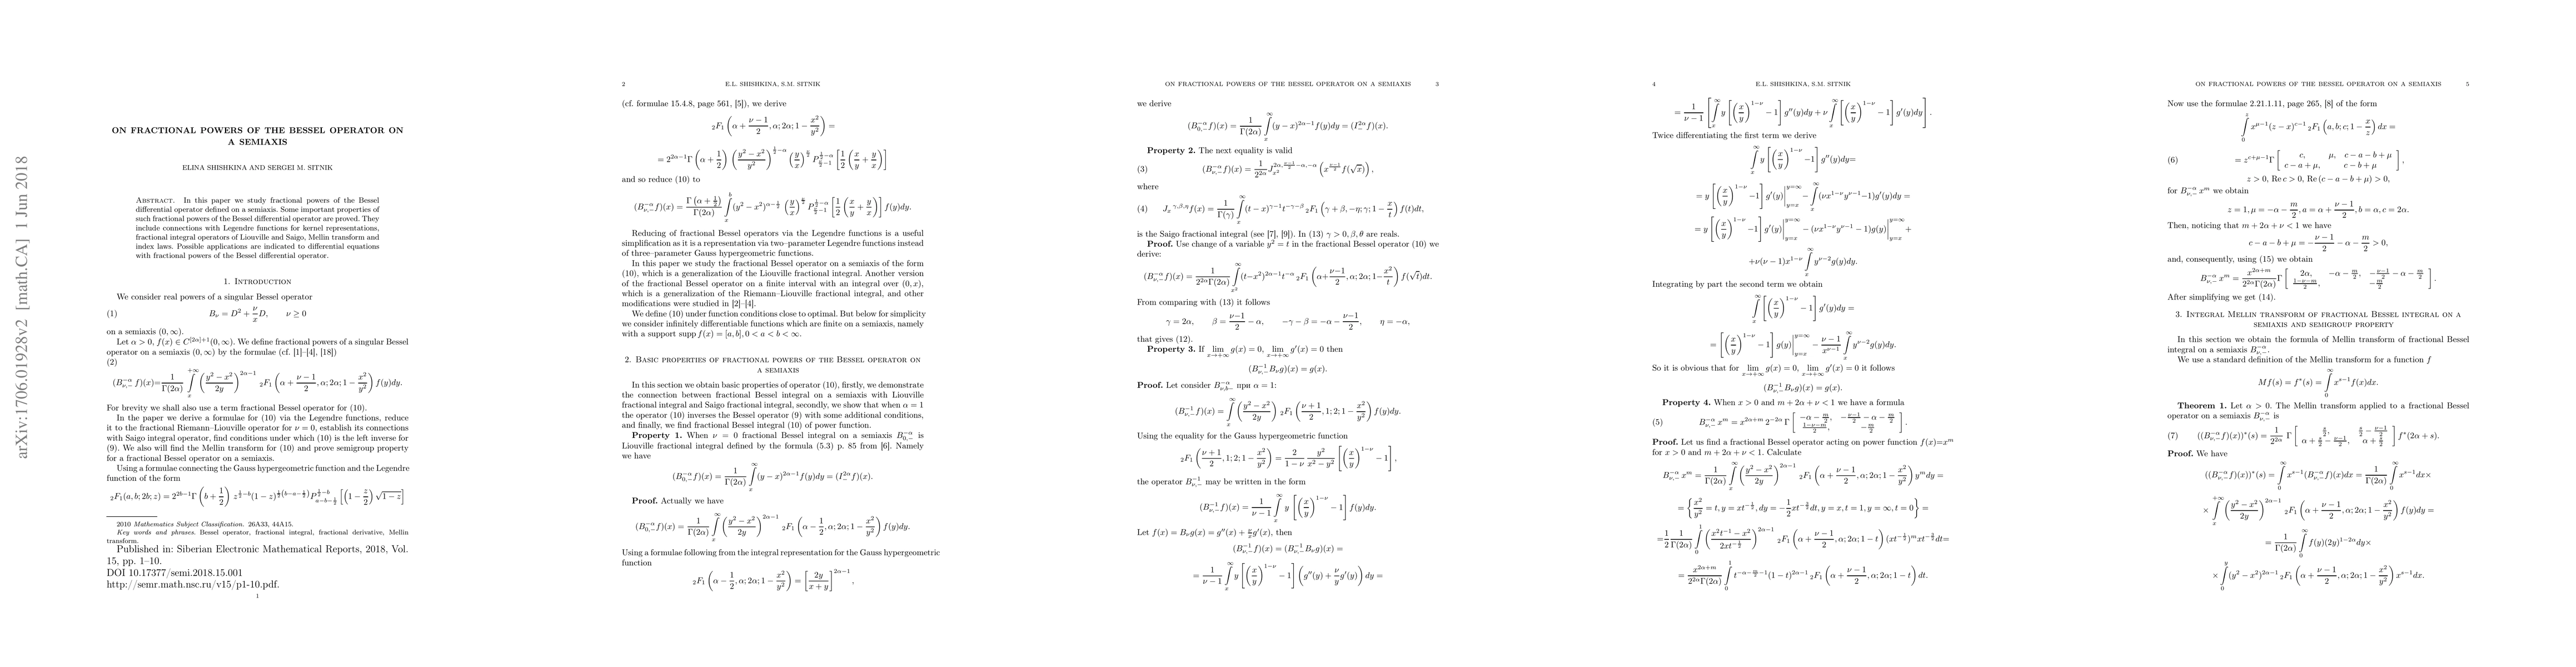 arXiv:1706.01928v2 [math.CA] 1 Jun 2018
ON FRACTIONAL POWERS OF THE BESSEL OPERATOR ON
A SEMIAXIS
ELINA SHISHKINA AND SERGEI M. SITNIK
Abstract. In this paper we study fractional powers of the Bessel
differential operator defined on a semiaxis. Some important properties of
such fractional powers of the Bessel differential operator are proved. They
include connections with Legendre functions for kernel representations,
fractional integral operators of Liouville and Saigo, Mellin transform and
index laws. Possible applications are indicated to differential equations
with fractional powers of the Bessel differential operator.
1. Introduction
We consider real powers of a singular Bessel operator
(1) B_ν = D² + \frac{ν}{x} D, ν ≥ 0
on a semiaxis (0, ∞).
Let α > 0, f(x) ∈ C^{[2α]+1}(0, ∞). We define fractional powers of a singular Bessel
operator on a semiaxis (0, ∞) by the formulae (cf. [1]–[4], [18])
(2)
(B_{ν,−}^{−α} f)(x) = \frac{1}{Γ(2α)} \int_x^{+∞} (\frac{y²−x²}{2y})^{2α−1} {}_2F_1(α + \frac{ν−1}{2}, α; 2α; 1 − \frac{x²}{y²}) f(y)dy.
For brevity we shall also use a term fractional Bessel operator for (10).
In the paper we derive a formulae for (10) via the Legendre functions, reduce
it to the fractional Riemann–Liouville operator for ν = 0, establish its connections
with Saigo integral operator, find conditions under which (10) is the left inverse for
(9). We also will find the Mellin transform for (10) and prove semigroup property
for a fractional Bessel operator on a semiaxis.
Using a formulae connecting the Gauss hypergeometric function and the Legendre
function of the form
{}_2F_1(a, b; 2b; z) = 2^{2b−1} Γ(b + \frac{1}{2}) z^{\frac{1}{2}−b} (1 − z)^{\frac{1}{2}(b−a−\frac{1}{2})} P_{a−b−\frac{1}{2}}^{\frac{1}{2}−b} [(1 − \frac{z}{2}) \frac{1}{\sqrt{1−z}}]
2010 Mathematics Subject Classification. 26A33, 44A15.
Key words and phrases. Bessel operator, fractional integral, fractional derivative, Mellin
transform.
Published in: Siberian Electronic Mathematical Reports, 2018, Vol.
15, pp. 1–10.
DOI 10.17377/semi.2018.15.001
http://semr.math.nsc.ru/v15/p1-10.pdf.
1
2 E.L. SHISHKINA, S.M. SITNIK
(cf. formulae 15.4.8, page 561, [5]), we derive
{}_2F_1(α + \frac{ν−1}{2}, α; 2α; 1 − \frac{x²}{y²}) =
= 2^{2α−1} Γ(α + \frac{1}{2}) (\frac{y²−x²}{y²})^{\frac{1}{2}−α} (\frac{y}{x})^{\frac{ν}{2}} P_{\frac{ν}{2}−1}^{\frac{1}{2}−α} [\frac{1}{2}(\frac{x}{y} + \frac{y}{x})]
and so reduce (10) to
(B_{ν,−}^{−α} f)(x) = \frac{Γ(α+\frac{1}{2})}{Γ(2α)} \int_x^b (y² − x²)^{α−\frac{1}{2}} (\frac{y}{x})^{\frac{ν}{2}} P_{\frac{ν}{2}−1}^{\frac{1}{2}−α} [\frac{1}{2}(\frac{x}{y} + \frac{y}{x})] f(y)dy.
Reducing of fractional Bessel operators via the Legendre functions is a useful
simplification as it is a representation via two–parameter Legendre functions instead
of three–parameter Gauss hypergeometric functions.
In this paper we study the fractional Bessel operator on a semiaxis of the form
(10), which is a generalization of the Liouville fractional integral. Another version
of the fractional Bessel operator on a finite interval with an integral over (0, x),
which is a generalization of the Riemann–Liouville fractional integral, and other
modifications were studied in [2]–[4].
We define (10) under function conditions close to optimal. But below for simplicity
we consider infinitely differentiable functions which are finite on a semiaxis, namely
with a support supp f(x) = [a, b], 0 < a < b < ∞.
2. Basic properties of fractional powers of the Bessel operator on
a semiaxis
In this section we obtain basic properties of operator (10), firstly, we demonstrate
the connection between fractional Bessel integral on a semiaxis with Liouville
fractional integral and Saigo fractional integral, secondly, we show that when α = 1
the operator (10) inverses the Bessel operator (9) with some additional conditions,
and finally, we find fractional Bessel integral (10) of power function.
Property 1. When ν = 0 fractional Bessel integral on a semiaxis B_{0,−}^{−α} is
Liouville fractional integral defined by the formula (5.3) p. 85 from [6]. Namely
we have
(B_{0,−}^{−α} f)(x) = \frac{1}{Γ(2α)} \int_x^∞ (y − x)^{2α−1} f(y)dy = (I_−^{2α} f)(x).
Proof. Actually we have
(B_{0,−}^{−α} f)(x) = \frac{1}{Γ(2α)} \int_x^∞ (\frac{y²−x²}{2y})^{2α−1} {}_2F_1(α − \frac{1}{2}, α; 2α; 1 − \frac{x²}{y²}) f(y)dy.
Using a formulae following from the integral representation for the Gauss hypergeometric
function
{}_2F_1(α − \frac{1}{2}, α; 2α; 1 − \frac{x²}{y²}) = [\frac{2y}{x+y}]^{2α−1},
ON FRACTIONAL POWERS OF THE BESSEL OPERATOR ON A SEMIAXIS 3
we derive
(B_{0,−}^{−α} f)(x) = \frac{1}{Γ(2α)} \int_x^∞ (y − x)^{2α−1} f(y)dy = (I_−^{2α} f)(x).
Property 2. The next equality is valid
(3) (B_{ν,−}^{−α} f)(x) = \frac{1}{2^{2α}} J_{x²}^{2α, \frac{ν−1}{2}−α, −α} (x^{\frac{ν−1}{2}} f(\sqrt{x})),
where
(4) J_x^{γ,β,η} f(x) = \frac{1}{Γ(γ)} \int_x^∞ (t − x)^{γ−1} t^{−γ−β} {}_2F_1(γ + β, −η; γ; 1 − \frac{x}{t}) f(t)dt,
is the Saigo fractional integral (see [7], [9]). In (13) γ > 0, β, θ are reals.
Proof. Use change of a variable y² = t in the fractional Bessel operator (10) we
derive:
(B_{ν,−}^{−α} f)(x) = \frac{1}{2^{2α}Γ(2α)} \int_{x²}^∞ (t−x²)^{2α−1} t^{−α} {}_2F_1(α + \frac{ν−1}{2}, α; 2α; 1 − \frac{x²}{t}) f(\sqrt{t})dt.
From comparing with (13) it follows
γ = 2α, β = \frac{ν−1}{2} − α, −γ − β = −α − \frac{ν−1}{2}, η = −α,
that gives (12).
Property 3. If \lim_{x→+∞} g(x) = 0, \lim_{x→+∞} g′(x) = 0 then
(B_{ν,−}^{−1} B_ν g)(x) = g(x).
Proof. Let consider B_{ν,b−}^{−α} при α = 1:
(B_{ν,−}^{−1} f)(x) = \int_x^∞ (\frac{y²−x²}{2y}) {}_2F_1(\frac{ν+1}{2}, 1; 2; 1 − \frac{x²}{y²}) f(y)dy.
Using the equality for the Gauss hypergeometric function
{}_2F_1(\frac{ν+1}{2}, 1; 2; 1 − \frac{x²}{y²}) = \frac{2}{1−ν} \frac{y²}{x²−y²} [(\frac{x}{y})^{1−ν} − 1],
the operator B_{ν,−}^{−1} may be written in the form
(B_{ν,−}^{−1} f)(x) = \frac{1}{ν−1} \int_x^∞ y [(\frac{x}{y})^{1−ν} − 1] f(y)dy.
Let f(x) = B_ν g(x) = g″(x) + \frac{ν}{x} g′(x), then
(B_{ν,−}^{−1} f)(x) = (B_{ν,−}^{−1} B_ν g)(x) =
= \frac{1}{ν−1} \int_x^∞ y [(\frac{x}{y})^{1−ν} − 1] (g″(y) + \frac{ν}{y} g′(y)) dy =
4 E.L. SHISHKINA, S.M. SITNIK
= \frac{1}{ν−1} [\int_x^∞ y [(\frac{x}{y})^{1−ν} − 1] g″(y)dy + ν \int_x^∞ [(\frac{x}{y})^{1−ν} − 1] g′(y)dy].
Twice differentiating the first term we derive
\int_x^∞ y [(\frac{x}{y})^{1−ν} − 1] g″(y)dy =
= y [(\frac{x}{y})^{1−ν} − 1] g′(y)|_{y=x}^{y=∞} − \int_x^∞ (νx^{1−ν}y^{ν−1} − 1)g′(y)dy =
= y [(\frac{x}{y})^{1−ν} − 1] g′(y)|_{y=x}^{y=∞} − (νx^{1−ν}y^{ν−1} − 1)g(y)|_{y=x}^{y=∞} +
+ν(ν − 1)x^{1−ν} \int_x^∞ y^{ν−2} g(y)dy.
Integrating by part the second term we obtain
\int_x^∞ [(\frac{x}{y})^{1−ν} − 1] g′(y)dy =
= [(\frac{x}{y})^{1−ν} − 1] g(y)|_{y=x}^{y=∞} − \frac{ν−1}{x^{ν−1}} \int_x^∞ y^{ν−2} g(y)dy.
So it is obvious that for \lim_{x→+∞} g(x) = 0, \lim_{x→+∞} g′(x) = 0 it follows
(B_{ν,−}^{−1} B_ν g)(x) = g(x).
Property 4. When x > 0 and m + 2α + ν < 1 we have a formula
(5) B_{ν,−}^{−α} x^m = x^{2α+m} 2^{−2α} Γ [ −α − \frac{m}{2}, −\frac{ν−1}{2} − α − \frac{m}{2} ; \frac{1−ν−m}{2}, −\frac{m}{2} ].
Proof. Let us find a fractional Bessel operator acting on power function f(x)=x^m
for x > 0 and m + 2α + ν < 1. Calculate
B_{ν,−}^{−α} x^m = \frac{1}{Γ(2α)} \int_x^∞ (\frac{y²−x²}{2y})^{2α−1} {}_2F_1(α + \frac{ν−1}{2}, α; 2α; 1 − \frac{x²}{y²}) y^m dy =
= {\frac{x²}{y²} = t, y = xt^{−\frac{1}{2}}, dy = −\frac{1}{2}xt^{−\frac{3}{2}}dt, y = x, t = 1, y = ∞, t = 0} =
= \frac{1}{2} \frac{1}{Γ(2α)} \int_0^1 (\frac{x²t^{−1} − x²}{2xt^{−\frac{1}{2}}})^{2α−1} {}_2F_1(α + \frac{ν−1}{2}, α; 2α; 1 − t) (xt^{−\frac{1}{2}})^m xt^{−\frac{3}{2}}dt=
= \frac{x^{2α+m}}{2^{2α}Γ(2α)} \int_0^1 t^{−α−\frac{m}{2}−1}(1 − t)^{2α−1} {}_2F_1(α + \frac{ν−1}{2}, α; 2α; 1 − t) dt.
ON FRACTIONAL POWERS OF THE BESSEL OPERATOR ON A SEMIAXIS 5
Now use the formulae 2.21.1.11, page 265, [8] of the form
\int_0^z x^{μ−1}(z − x)^{c−1} {}_2F_1(a, b; c; 1 − \frac{x}{z}) dx =
(6) = z^{c+μ−1} Γ [ c, μ, c − a − b + μ ; c − a + μ, c − b + μ ],
z > 0, Re c > 0, Re (c − a − b + μ) > 0,
for B_{ν,−}^{−α} x^m we obtain
z = 1, μ = −α − \frac{m}{2}, a = α + \frac{ν−1}{2}, b = α, c = 2α.
Then, noticing that m + 2α + ν < 1 we have
c − a − b + μ = −\frac{ν−1}{2} − α − \frac{m}{2} > 0,
and, consequently, using (15) we obtain
B_{ν,−}^{−α} x^m = \frac{x^{2α+m}}{2^{2α}Γ(2α)} Γ [ 2α, −α − \frac{m}{2}, −\frac{ν−1}{2} − α − \frac{m}{2} ; \frac{1−ν−m}{2}, −\frac{m}{2} ].
After simplifying we get (14).
3. Integral Mellin transform of fractional Bessel integral on a
semiaxis and semigroup property
In this section we obtain the formula of Mellin transform of fractional Bessel
integral on a semiaxis B_{ν,−}^{−α}.
We use a standard definition of the Mellin transform for a function f
Mf(s) = f*(s) = \int_0^∞ x^{s−1} f(x)dx.
Theorem 1. Let α > 0. The Mellin transform applied to a fractional Bessel
operator on a semiaxis B_{ν,−}^{−α} is
(7) ((B_{ν,−}^{−α} f)(x))*(s) = \frac{1}{2^{2α}} Γ [ \frac{s}{2}, \frac{s}{2} − \frac{ν−1}{2} ; α + \frac{s}{2} − \frac{ν−1}{2}, α + \frac{s}{2} ] f*(2α + s).
Proof. We have
((B_{ν,−}^{−α} f)(x))*(s) = \int_0^∞ x^{s−1}(B_{ν,−}^{−α} f)(x)dx = \frac{1}{Γ(2α)} \int_0^∞ x^{s−1}dx×
× \int_x^{+∞} (\frac{y²−x²}{2y})^{2α−1} {}_2F_1(α + \frac{ν−1}{2}, α; 2α; 1 − \frac{x²}{y²}) f(y)dy =
= \frac{1}{Γ(2α)} \int_0^∞ f(y)(2y)^{1−2α}dy×
× \int_0^y (y² − x²)^{2α−1} {}_2F_1(α + \frac{ν−1}{2}, α; 2α; 1 − \frac{x²}{y²}) x^{s−1}dx.